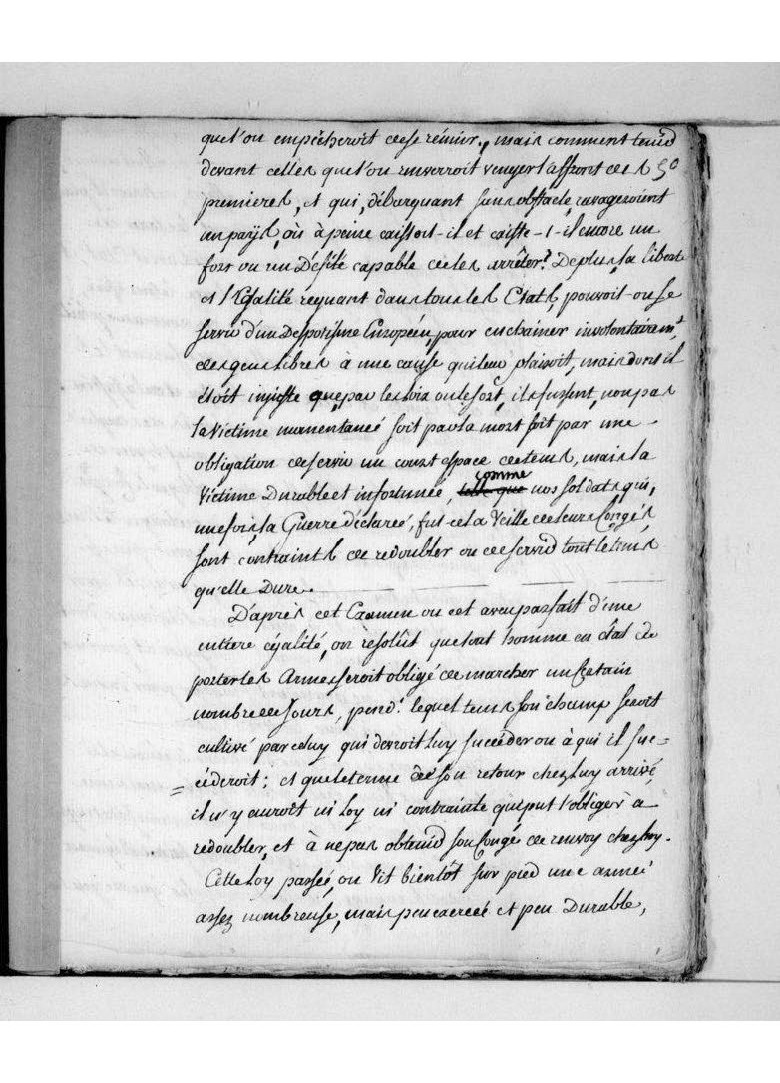 que l'on empêcheroit de se réunir, mais comment tenir
devant celles que l'on enverroit venger l'affront des 50
premieres, et qui, débarquant sans obstacle, ravageroient
un payis, où à peine existoit-il et existe-t-il encore un
fort ou un Défilé capable de les arrêter? De plus, la liberté
et l'Egalité regnant dans tous les Etats, pouvoit-on se
servir d'un Despotisme Européen, pour enchainer involontairemt.
des gens libres à une cause qui leur plaisoit, mais dont il
étoit injuste que, par les loix ou le sort, ils fussent, non pas
la Victime momentaneé soit par la mort soit par une
obligation de servir un court espace de tems, mais la
Victime Durable et infortuneé, comme nos soldats qui,
une fois, la Guerre déclareé, fut-ce la Veille de leurs Congés
sont contraints de redoubler ou de servir tout le tems
qu'elle Dure.
D'après cet Examen ou cet aveu parfait d'une
entiere égalité, on resolût que tout homme en état de
porter les Armes seroit obligé de marcher un Certain
nombre de Jours, pendt. lequel tems son champ seroit
cultivé par celuy qui devroit luy succéder ou à qui il suc=
=céderoit; et que le terme de son retour chez luy arrivé,
il n'y auroit ni loy ni contrainte qui put l'obliger à
redoubler, et à ne pas obtenir son Congé de renvoy chez luy.
Cette loy passeé, on Vit bientôt sur pied une armeé
assez nombreuse, mais peu exerceé et peu Durable,